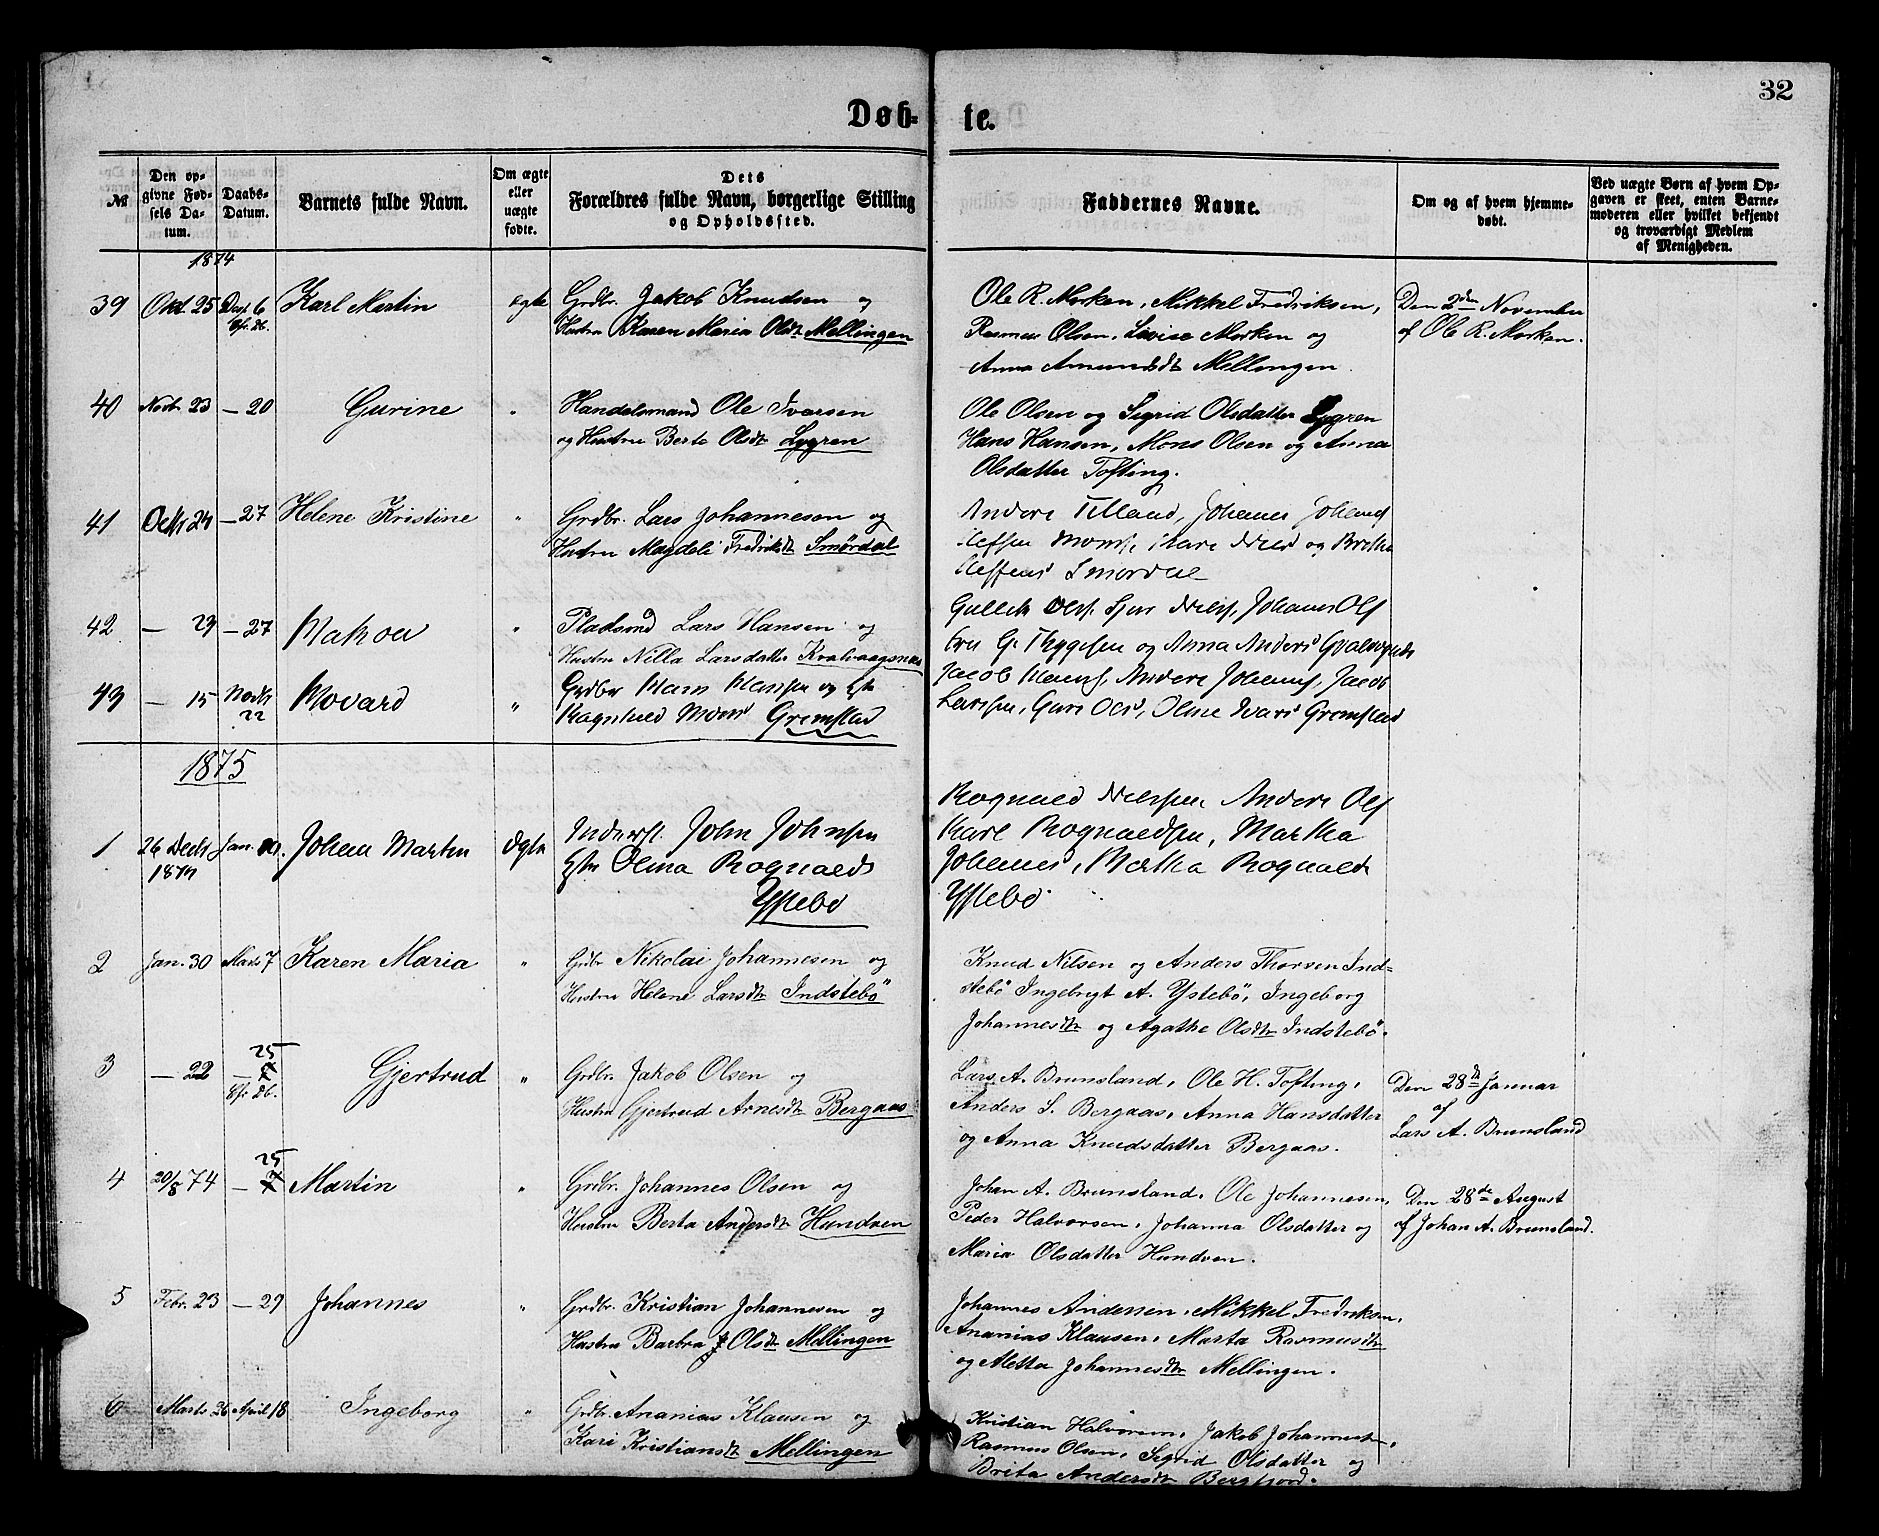 32
Døb- te.
№
Den op-
givne Fød-
sels Da-
tum.
Daabs-
Datum.
Barnets fulde Navn.
Om ægte
eller
uægte
fødte.
Dets
Forældres fulde Navn, borgerlige Stilling
og Opholdssted.
Faddernes Navne.
Om og af hvem hjemme-
døbt.
Ved uægte Børn af hvem Op-
gaven er skeet, enten Barne-
moderen eller hvilket bekjendt
og troværdigt Medlem
af Menigheden.
1874
39 Okt. 25 6 Karl Martin ægte Grdbr. Jakob Knudsen og
Hustru Karen Maria Olsdt Mellingen
Ole R. Morken, Mikkel Fredriksen,
Rasmus Olsen, Lovise Morken og
Anna Amundsdt Mellingen
Den 2den November
af Ole R. Morken.
40 Novb. 23 — 20 Gurine " Handelsmand Ole Ivarsen
og Hustru Berte Olsdt Lygren
Ole Olsen og Sigrid Olsdatter Lygren
Hans Hansen, Mons Olsen og Anna
Olsdatter Tofting.
41 24 — 27 Helene Kristine " Grdbr. Lars Johannesen og
Hustru Magdeli Fredriksdt Smørdal
Anders Johannes
og
Smørdal
42 — 29 — 27 " Pladsmd Lars Hansen og
Hustru Nilla Larsdatter Kvalvaagsnes
Johannes Ols
G. Thygesen og Anna Anders
43 — 15 22 " og
Mons Gremstad
Jacob Anders Johans, Jacob
Larssen, Guri Ols, Oline Ivars Gremstad
1875
1 26 Decbr Jan. Johan Martin ægte Inderst. John Johnsen
1874
Olina Rognalds
Ystebø
Rognald Nielssen, Anders Ols
Karl Rognaldsen, Martha
Johannes, Martha Rognalds
Ystebø.
2 Jan. 30 Marts 7 Karen Maria " Grdbr Nikolai Johannesen og
Hustru Helene Larsdtr Indstebø
Knud Nilsen og Anders Thorsen Ind-
stebø Ingebrigt A. Ystebø, Ingeborg
Johannesdtr og Agathe Olsdtr Indstebø.
3 — 22 — 25 Gjertrud " Grdbr. Jakob Olsen og
Hustru Gjertrud Arnesdt Bergaas
Lars A. Brunsland, Ole H. Tofting,
Anders S. Bergaas, Anna Hansdatter
og Anna Knudsdatter Bergaas.
Den 28de Januar
af
Lars A. Brunsland
4 20/8 74 — 25 Martin " Grdbr. Johannes Olsen og
Hustru Berta Andersdt Hundven
Johan A. Brunsland, Ole Johannesen,
Peder Halvorsen, Johanna Olsdatter og
Maria Olsdatter Hundven.
Den 28de August
af Johan A. Brunsland.
5 Febr. 23 — 29 Johannes " Grdbr. Kristian Johannesen og
Hustru Barbra Olsdt Mellingen
Johannes Andersen, Mikkel Fredriksen,
Ananias Klausen, Marta Rasmusdtr
og Metta Johannesdtr Mellingen.
6 Marts 26 April 18 Ingeborg " Grdbr. Ananias Klausen og
Kari Kristiansdt Mellingen
Kristian Halvorsen, Jakob Johannesen,
Rasmus Olsen, Sigrid Olsdatter og
Brita Andersdt